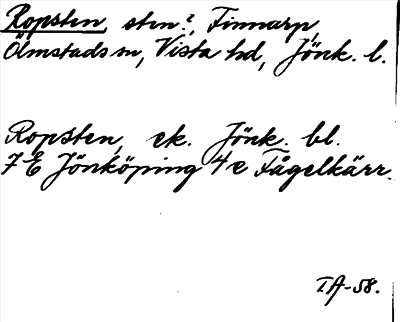 Ropsten, sten?, Finnarp,
Ölmstads sn, Vista hd, Jönk. l.
Ropsten, ek. Jönk. bl.
7 E Jönköping 4 e Fågelkärr.
IA-58.